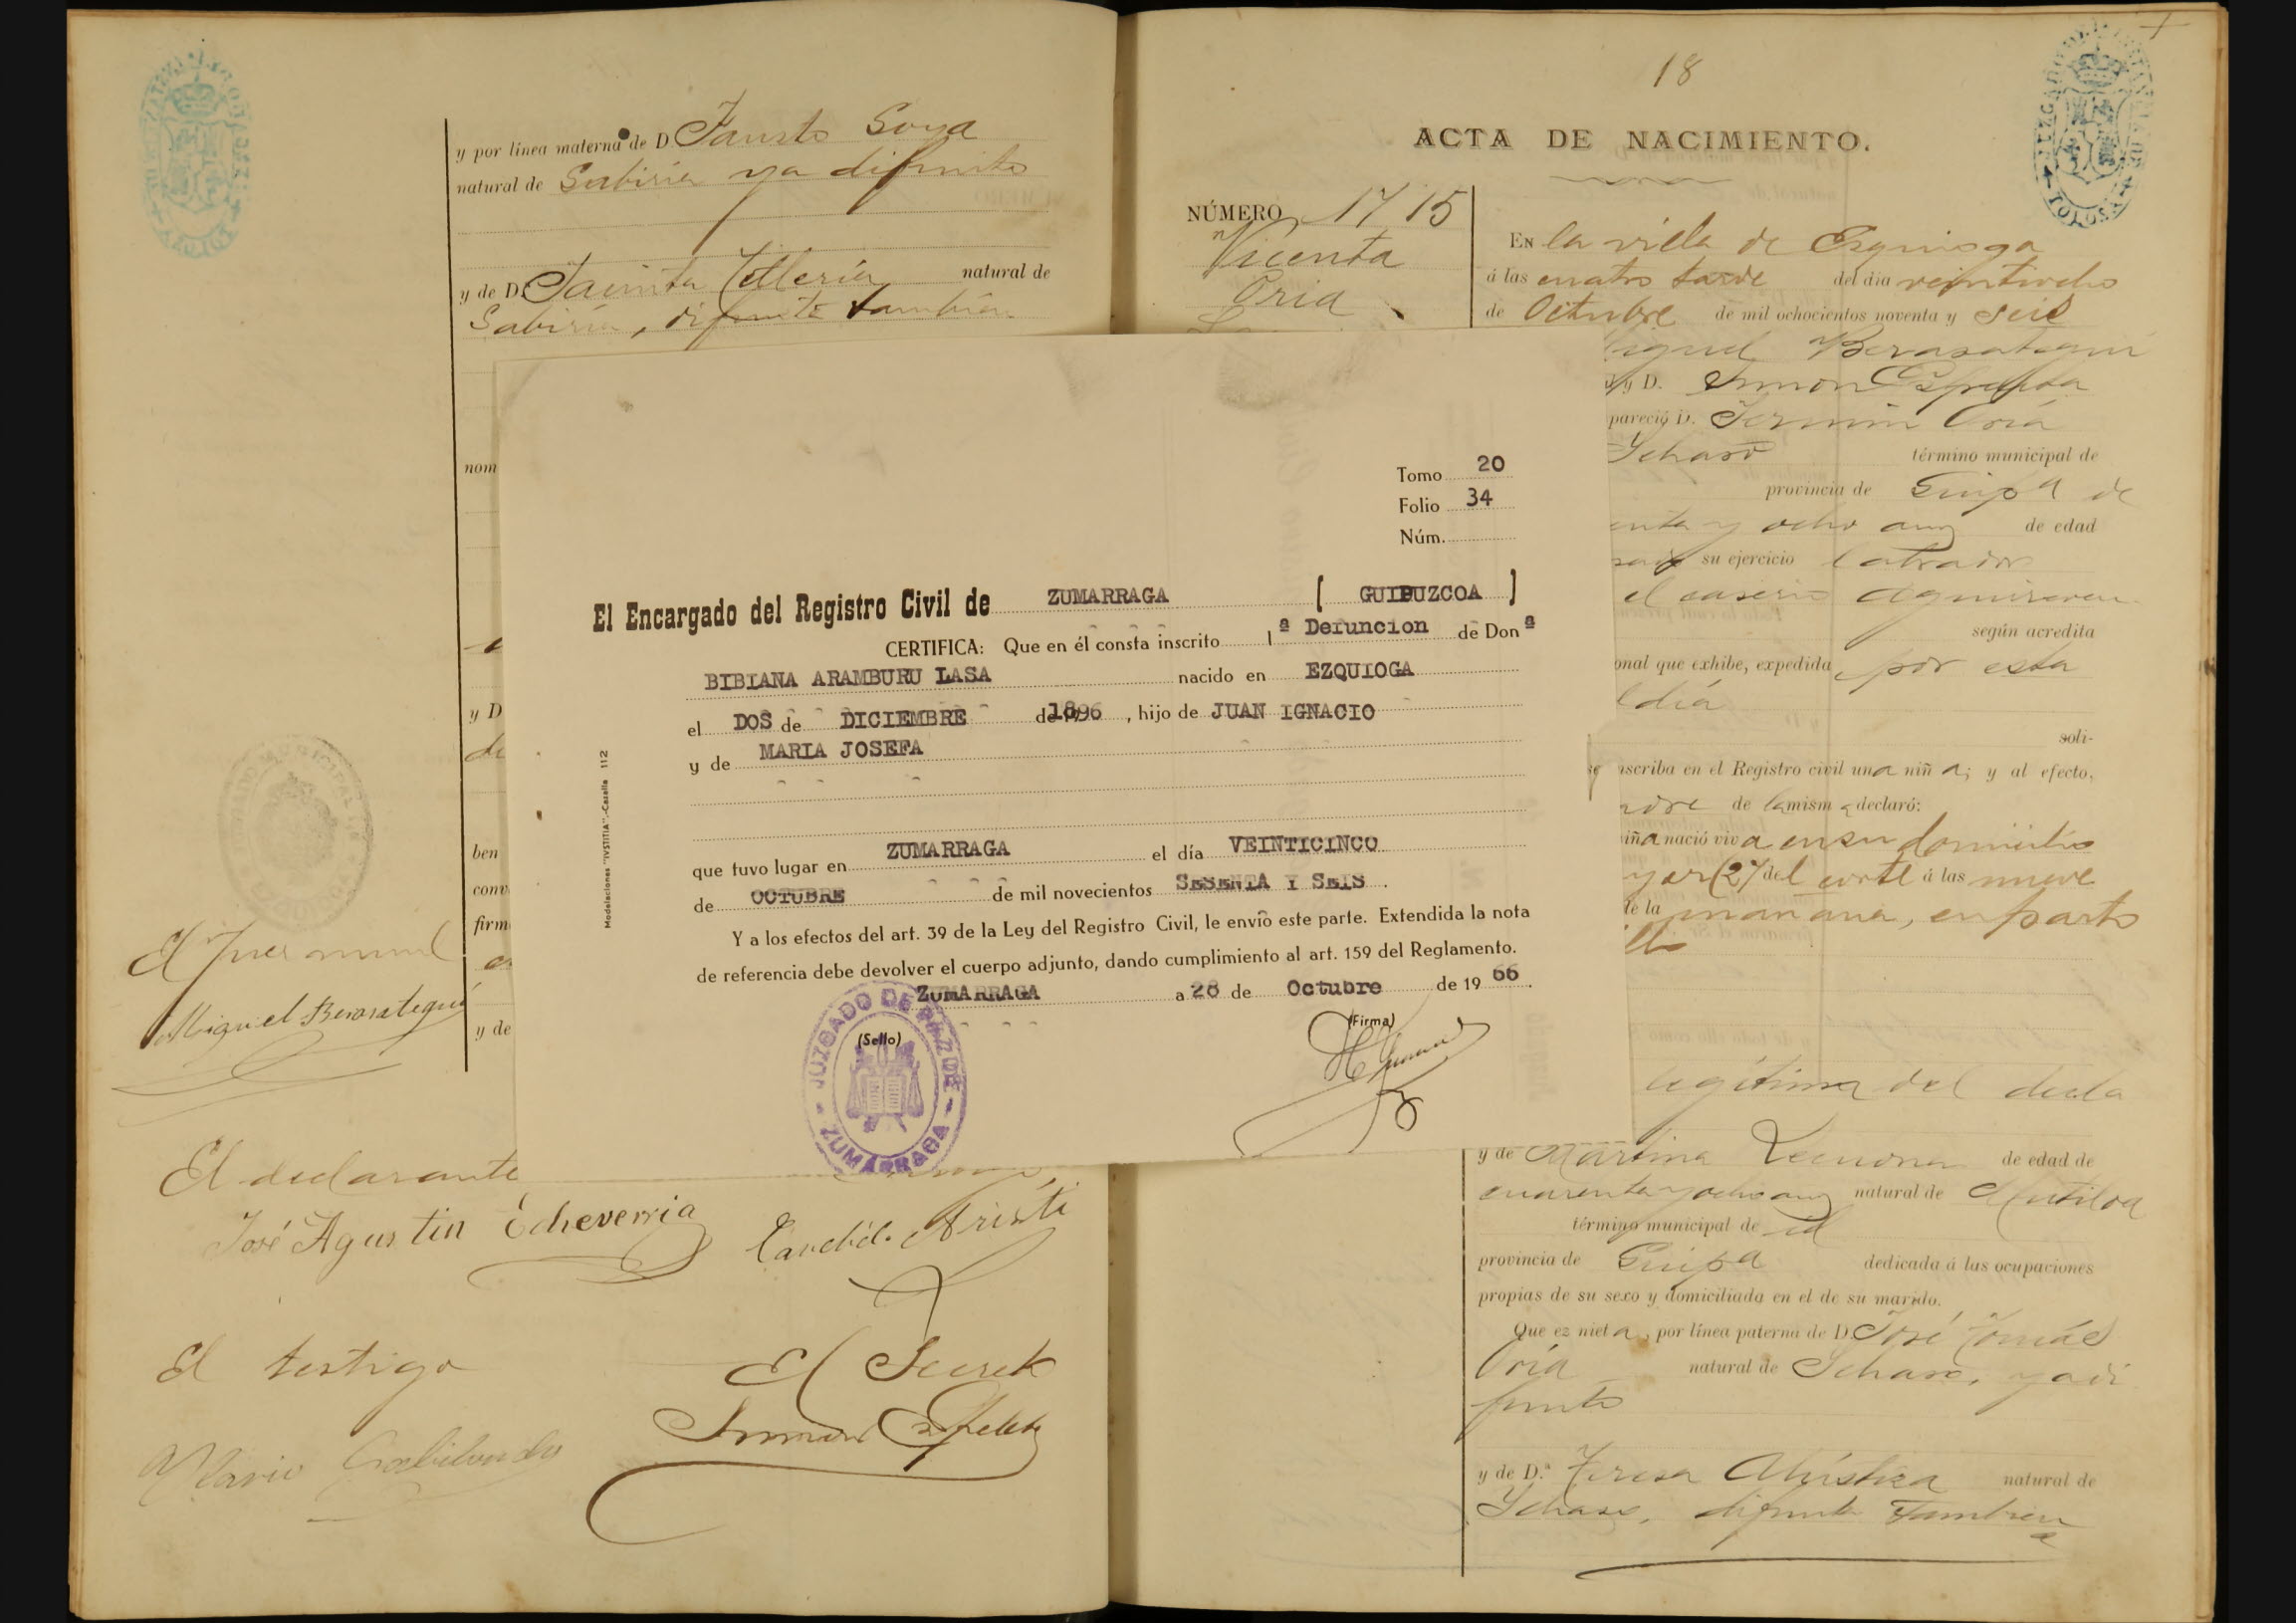 y por línea materna de D. Fausto Soya
natural de Gabiria ya difunto
y de D. Jacinta Tellería natural de
Gabiria, difunta también
nom
y D
de
ben
conv
firm
y de
El Juez munl
Miguel Berasategui
El declarante
José Agustin Echeverria
Candido Aristi
El testigo
El Secreto
Mario Gabilondo
18
ACTA DE NACIMIENTO.
NÚMERO 17 15
Vicenta
Oria
EN la villa de Ezquioga
á las cuatro tarde del dia veintiocho
de Octubre de mil ochocientos noventa y seis
Miguel Berasategui
y D. Simon
pareció D. Fermin Oría
Ychaso término municipal de
provincia de Guipa de
enta y ocho años de edad
su ejercicio labrador
el caserio
según acredita
onal que exhibe, expedida por esta
ldía
soli-
se inscriba en el Registro civil una niña; y al efecto,
padre de la misma declaró:
niña nació viva en su domicilio
ayer (27) del corte á las nueve
de la mañana, en parto
legítima del decla
y de Martina Lecuona de edad de
cuarenta y ocho años natural de Mutiloa
término municipal de id
provincia de Guipa dedicada á las ocupaciones
propias de su sexo y domiciliada en el de su marido.
Que es nieta, por línea paterna de D. José Tomás
Oría natural de Ychaso, ya di
funto
y de D.ª Teresa natural de
Ychaso, difunta tambien
Tomo 20
Folio 34
Núm.
El Encargado del Registro Civil de ZUMARRAGA [ GUIPUZCOA ]
CERTIFICA: Que en él consta inscrito lª Defuncion de Donª
BIBIANA ARAMBURU LASA nacido en EZQUIOGA
el DOS de DICIEMBRE de 1896, hijo de JUAN IGNACIO
y de MARIA JOSEFA
que tuvo lugar en ZUMARRAGA el día VEINTICINCO
de OCTUBRE de mil novecientos SESENTA Y SEIS.
Y a los efectos del art. 39 de la Ley del Registro Civil, le envío este parte. Extendida la nota
de referencia debe devolver el cuerpo adjunto, dando cumplimiento al art. 159 del Reglamento.
ZUMARRAGA a 28 de Octubre de 19 66.
(Firma)
(Sello)
JUZGADO DE PAZ DE
ZUMARRAGA
Modelaciones "IVSTITIA".-Casella 112